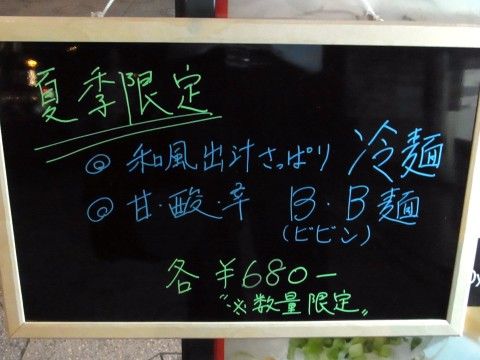 夏季限定
◎ 和風出汁さっぱり 冷麺
◎ 甘・酸・辛 B・B麺
(ビビン)
各 ¥680-
〝※数量限定〟